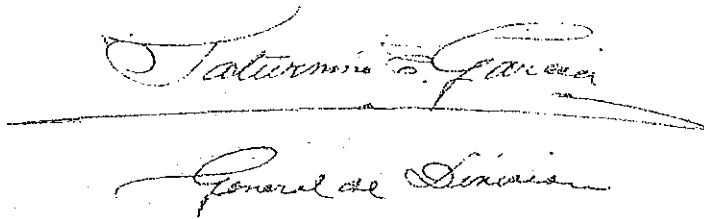 Saturnino S. Garcia
General de Division